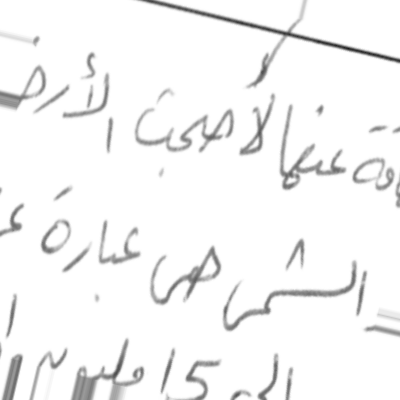 عنها لأصبحت الأرض
الشمس هي عبارة
إلى 15 مليون